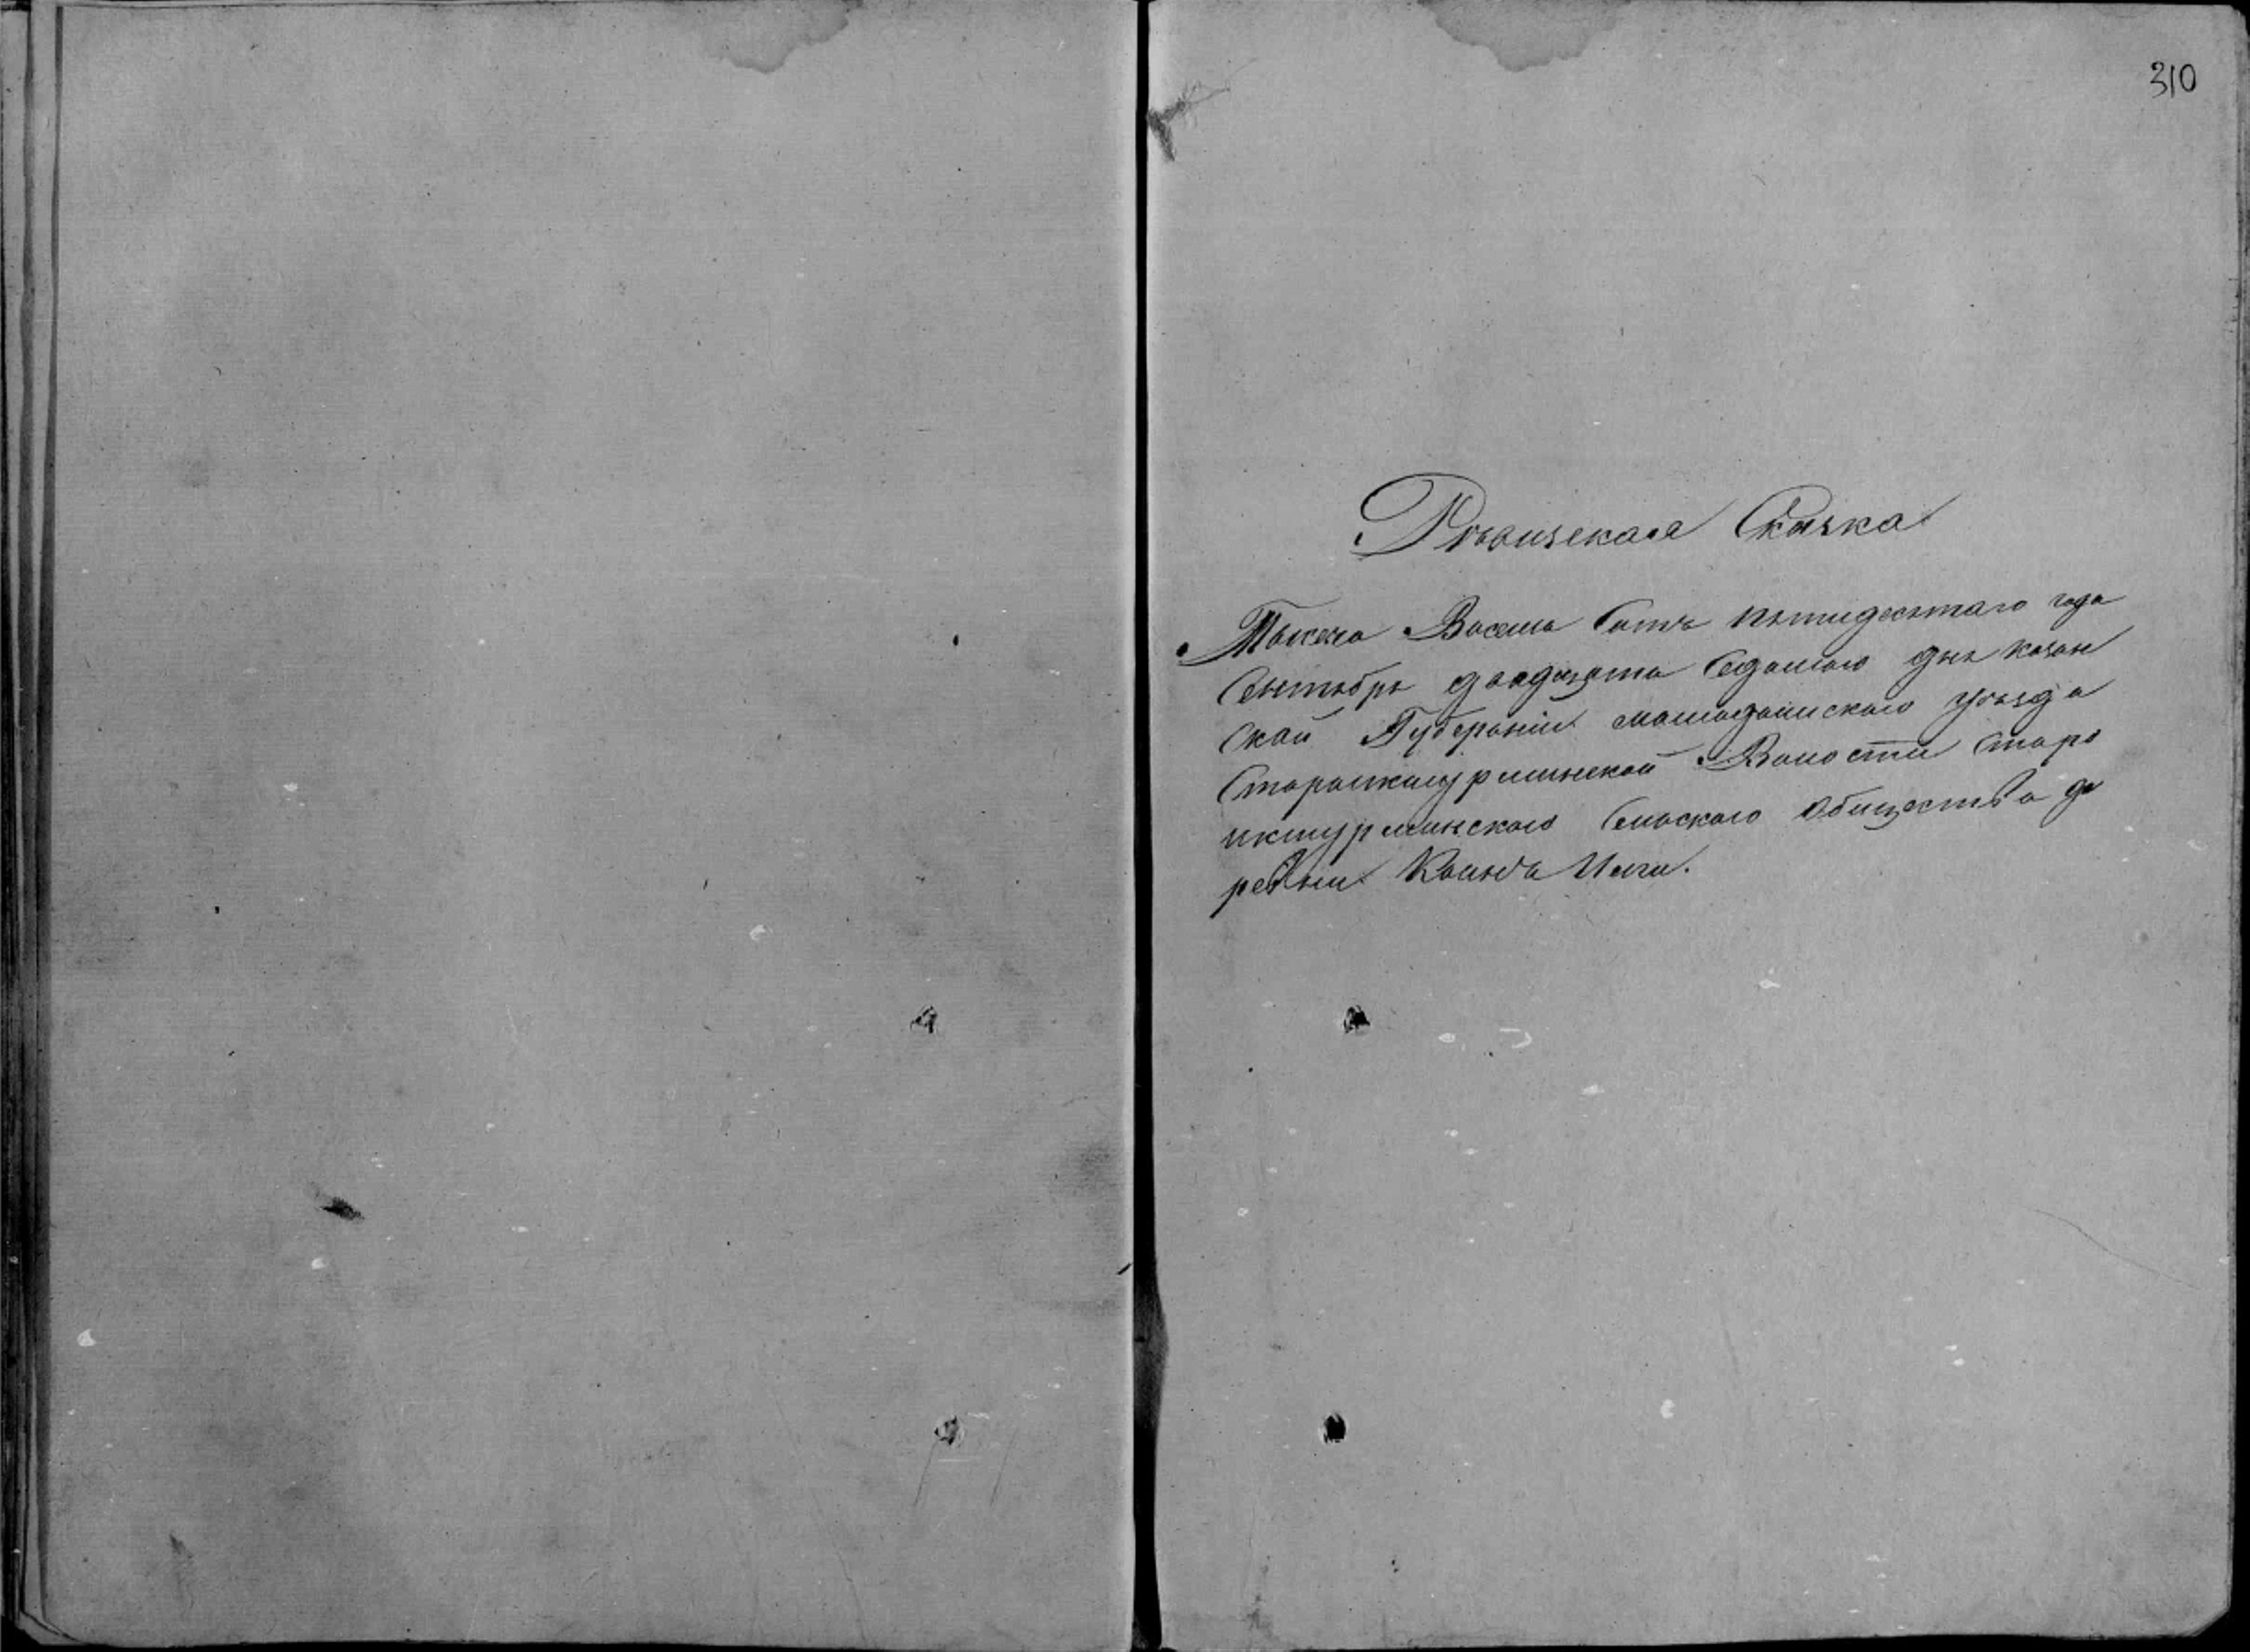 310
Ревизская Сказка
Тысеча Восемь Сотъ пятидесятаго года
Сентября двадцята Седьмаго дня казан
Ской Губерніи мамадышскаго уѣзда
Староикшурминской Волости Старо
икшурминскаго Сельского Общества де
ревни